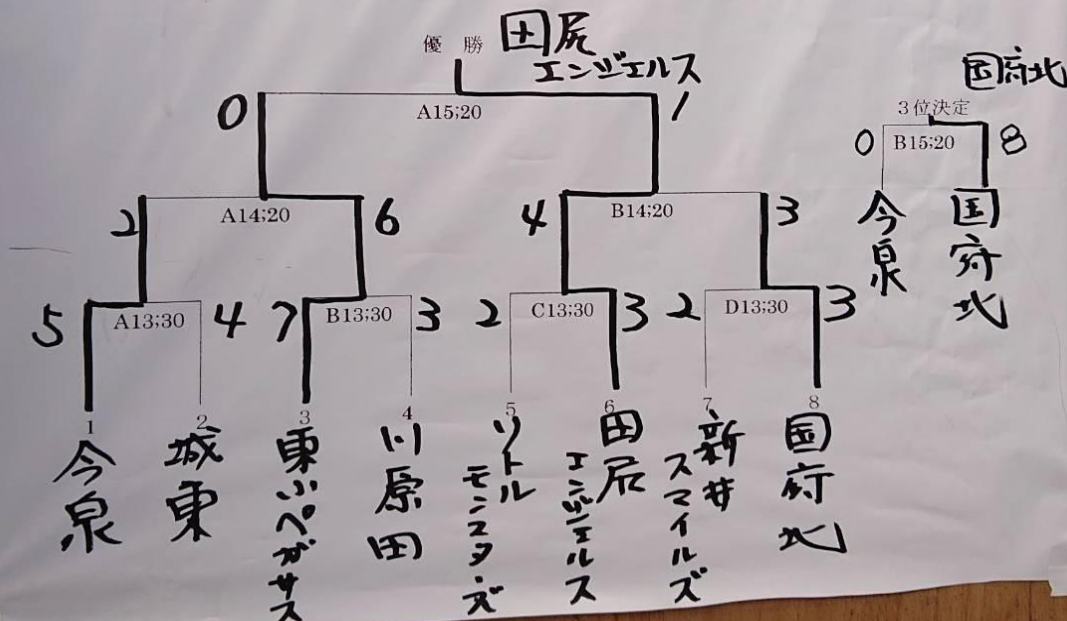 優勝 田尻
エンジェルス
国府北
3位決定
0 A15;20 1
0 B15;20 8
今泉
国府北
2 A14;20 6
4 B14;20 3
5 A13;30 4
7 B13;30 3
2 C13;30 3
2 D13;30 3
1
今泉
2
城東
3
東小ペガサス
4
川原田
5
リトル
モンスターズ
6
田尻
エンジェルス
7
新井
スマイルズ
8
国府北